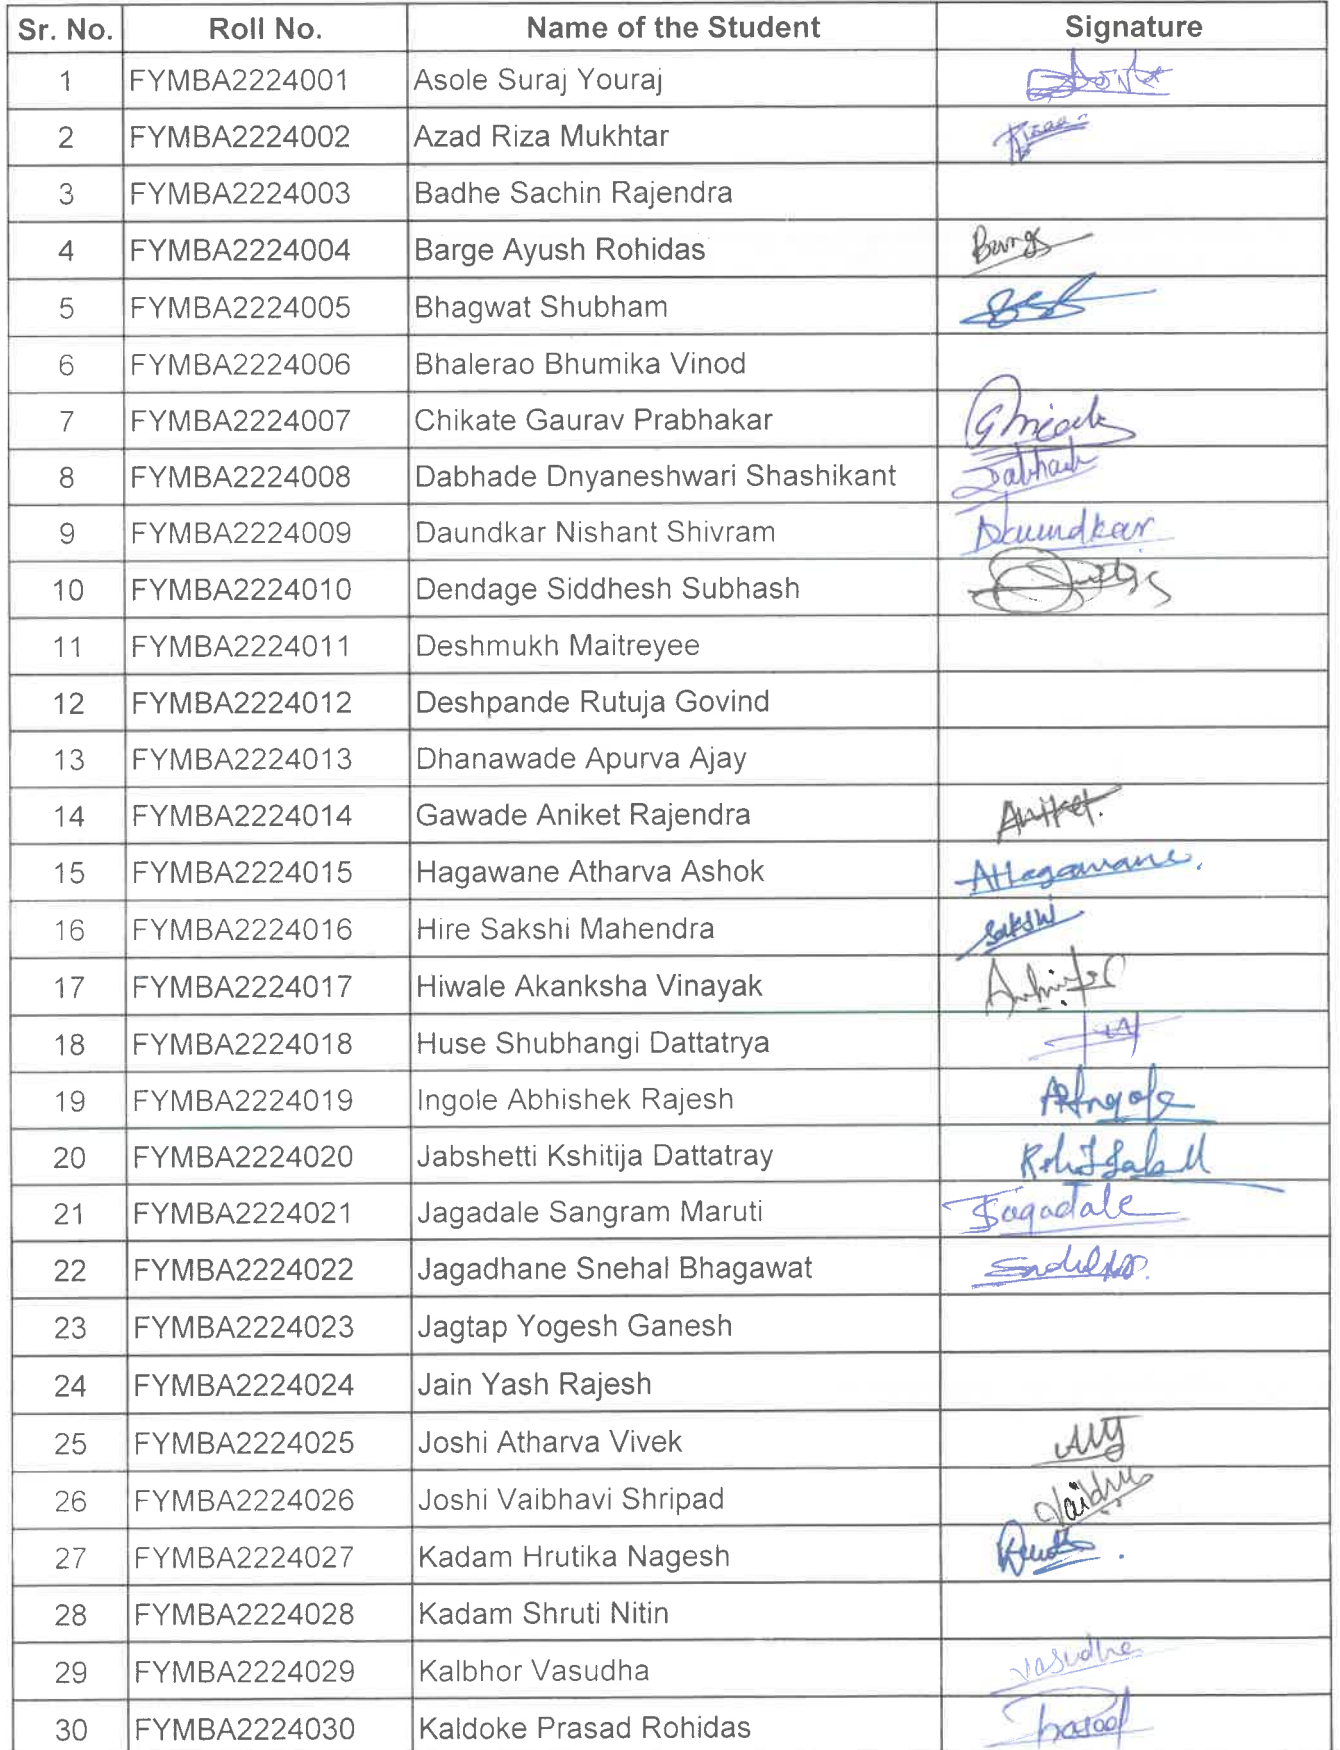 Sr. No. Roll No. Name of the Student Signature
1 FYMBA2224001 Asole Suraj Youraj
2 FYMBA2224002 Azad Riza Mukhtar
3 FYMBA2224003 Badhe Sachin Rajendra
4 FYMBA2224004 Barge Ayush Rohidas
5 FYMBA2224005 Bhagwat Shubham
6 FYMBA2224006 Bhalerao Bhumika Vinod
7 FYMBA2224007 Chikate Gaurav Prabhakar
8 FYMBA2224008 Dabhade Dnyaneshwari Shashikant
9 FYMBA2224009 Daundkar Nishant Shivram Daundkar
10 FYMBA2224010 Dendage Siddhesh Subhash
11 FYMBA2224011 Deshmukh Maitreyee
12 FYMBA2224012 Deshpande Rutuja Govind
13 FYMBA2224013 Dhanawade Apurva Ajay
14 FYMBA2224014 Gawade Aniket Rajendra Aniket.
15 FYMBA2224015 Hagawane Atharva Ashok AHagawane.
16 FYMBA2224016 Hire Sakshi Mahendra Sakshi
17 FYMBA2224017 Hiwale Akanksha Vinayak
18 FYMBA2224018 Huse Shubhangi Dattatrya
19 FYMBA2224019 Ingole Abhishek Rajesh
20 FYMBA2224020 Jabshetti Kshitija Dattatray
21 FYMBA2224021 Jagadale Sangram Maruti Jagadale
22 FYMBA2224022 Jagadhane Snehal Bhagawat
23 FYMBA2224023 Jagtap Yogesh Ganesh
24 FYMBA2224024 Jain Yash Rajesh
25 FYMBA2224025 Joshi Atharva Vivek
26 FYMBA2224026 Joshi Vaibhavi Shripad
27 FYMBA2224027 Kadam Hrutika Nagesh
28 FYMBA2224028 Kadam Shruti Nitin
29 FYMBA2224029 Kalbhor Vasudha Vasudha
30 FYMBA2224030 Kaldoke Prasad Rohidas Prasad